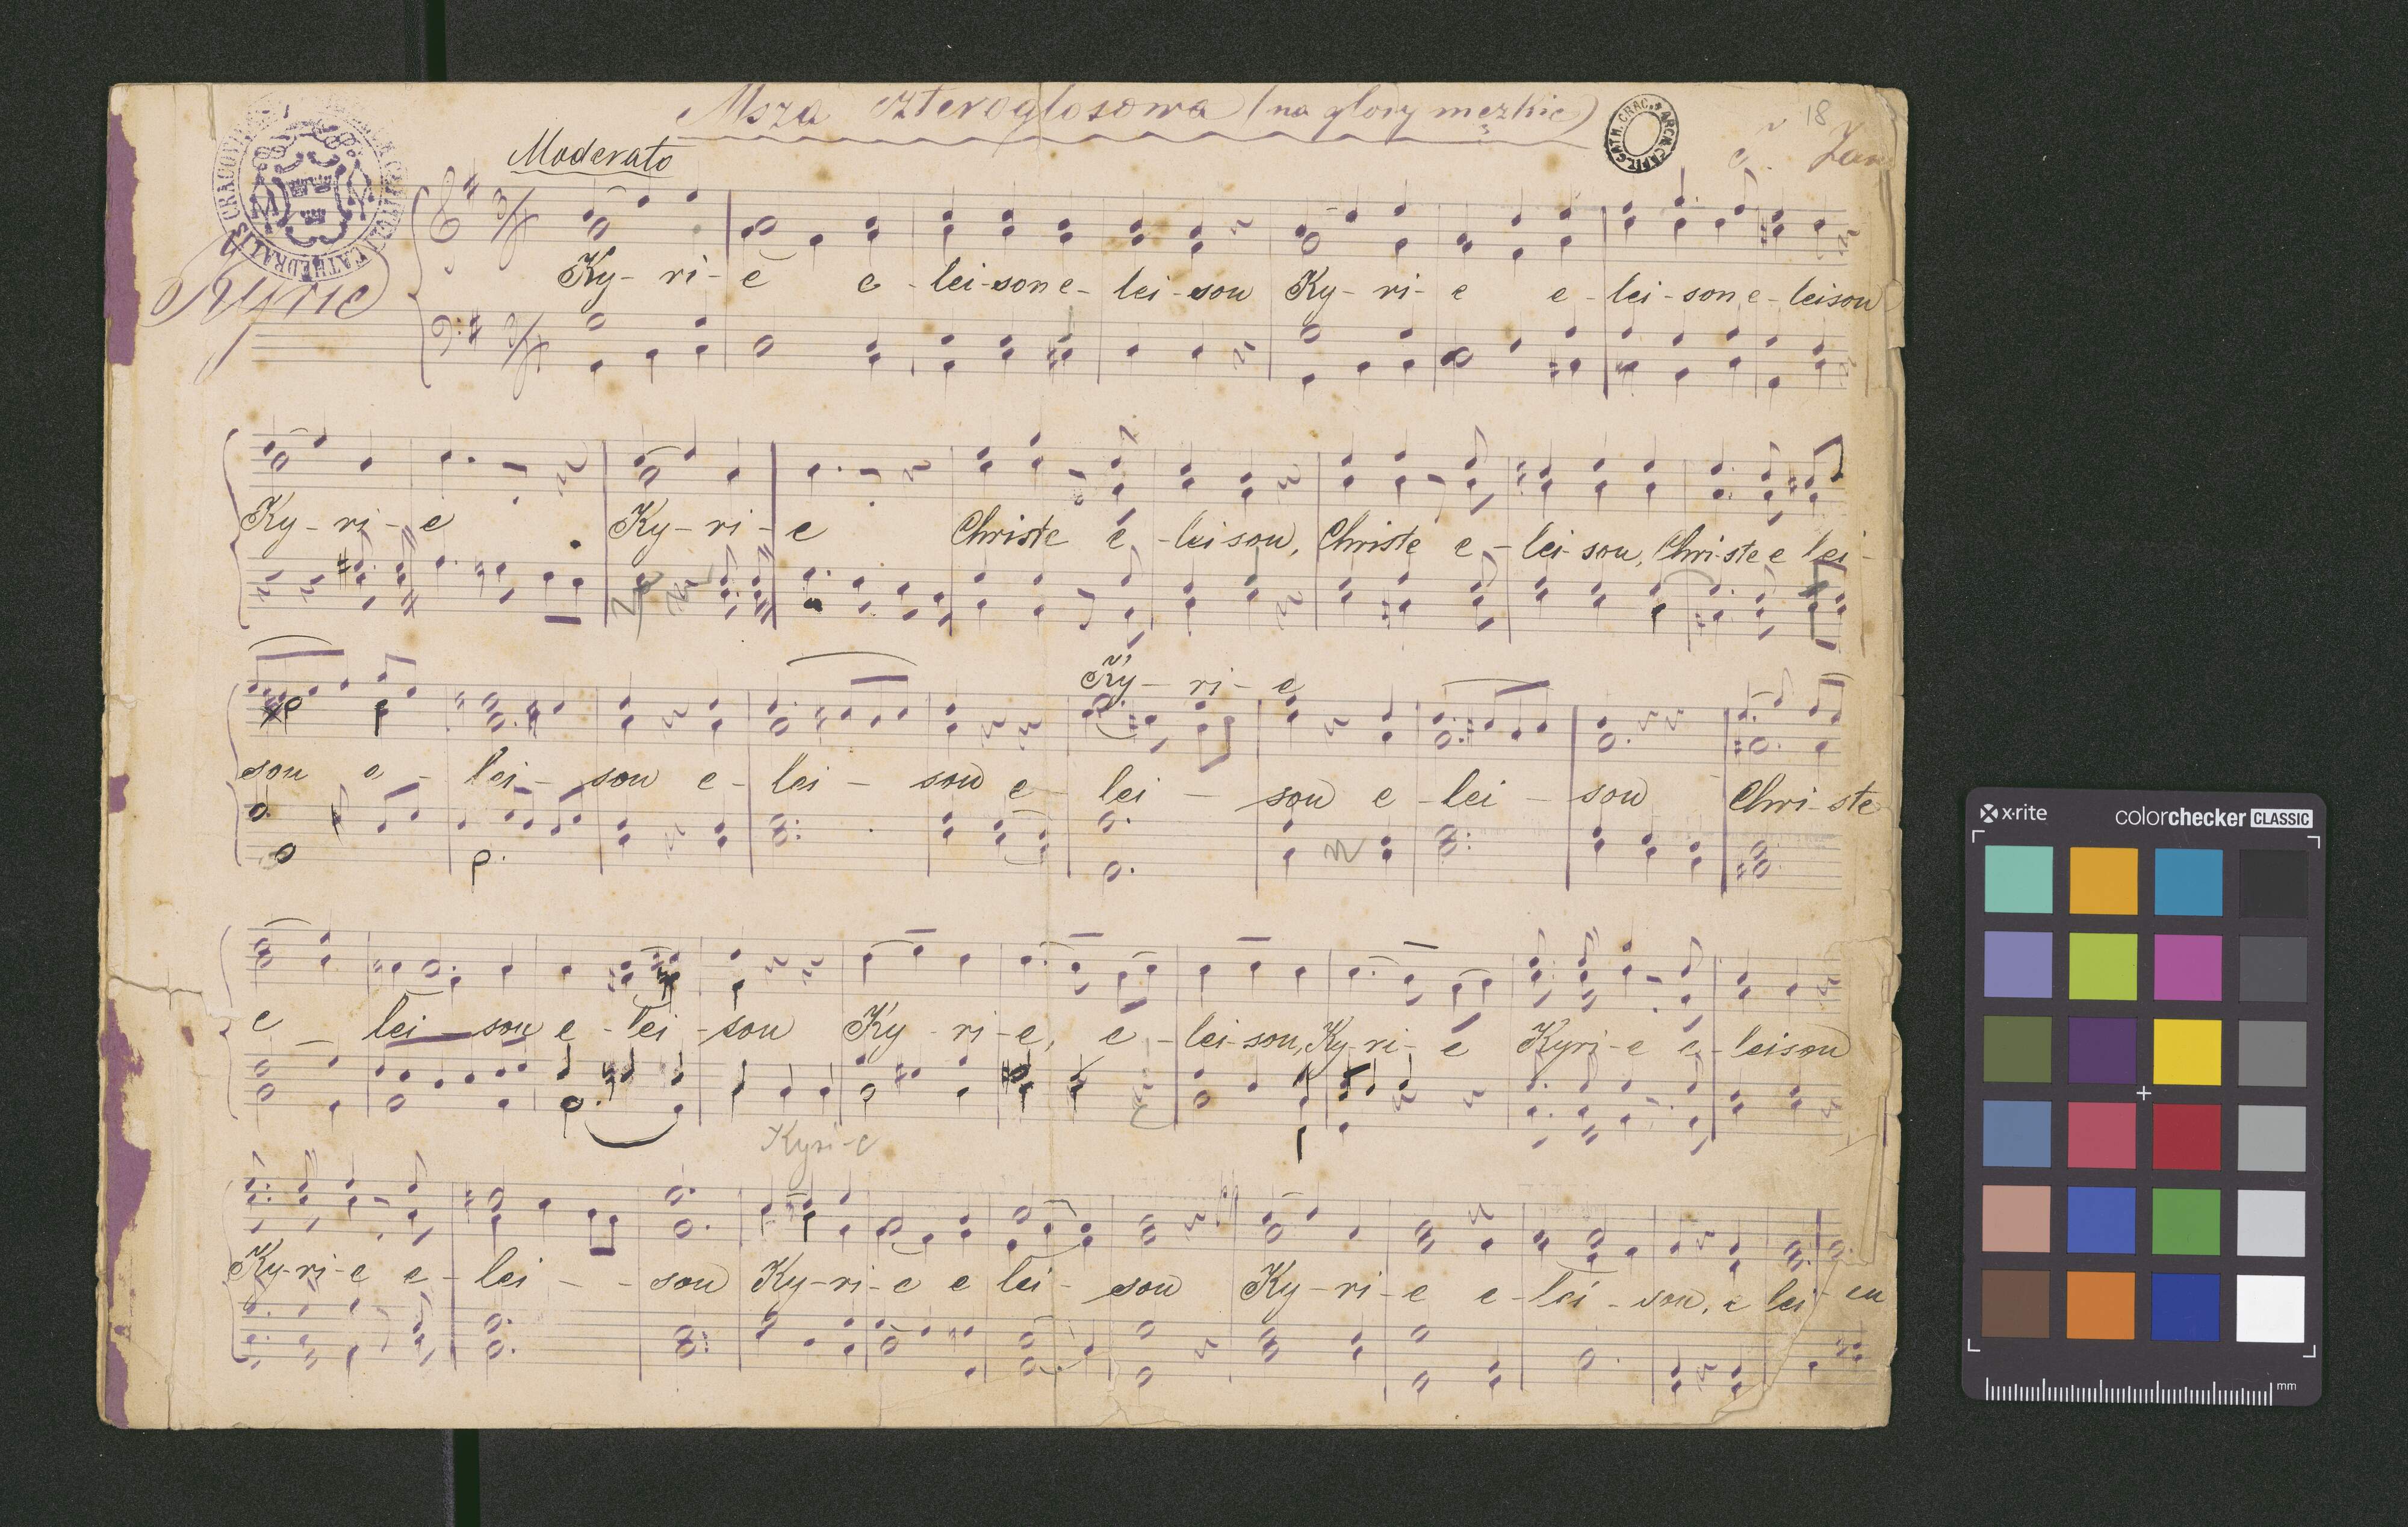 Msza czterogłosowa (na głosy męzkie)
18
Moderato
Kyrie
Ky-ri-e e-lei-son e-lei-son Ky-ri-e e-lei-son e-leison
Ky-ri-e Ky-ri-e Christe e-leison, Christe e-lei-son, Christe e lei-
Ky-ri-e
son e-lei-son e-lei-son e lei-son e-lei-son Chri-ste
e lei-son e-lei-son Ky-ri-e, e-leison, Ky-ri-e Kyri-e e-leison
Kyri-e
Ky-ri-e e-lei-son Ky-ri-e e lei-son Ky-ri-e e-lei-son, e lei-
x·rite
colorchecker CLASSIC
mm